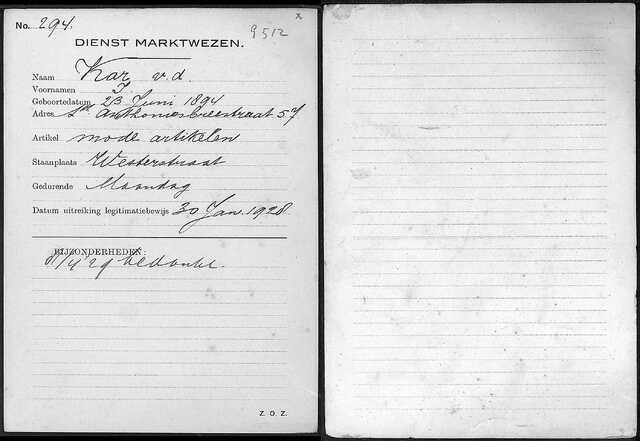 No. 294.
9512
x
DIENST MARKTWEZEN.
Naam Kar v.d.
Voornamen I.
Geboortedatum 23 Juni 1894
Adres St Anthoniesbreestraat 57
Artikel mode artikelen
Staanplaats Westerstraat
Gedurende Maandag
Datum uitreiking legitimatiebewijs 30 Jan. 1928.
BIJZONDERHEDEN:
/4 29 bedankt.
Z. O. Z.